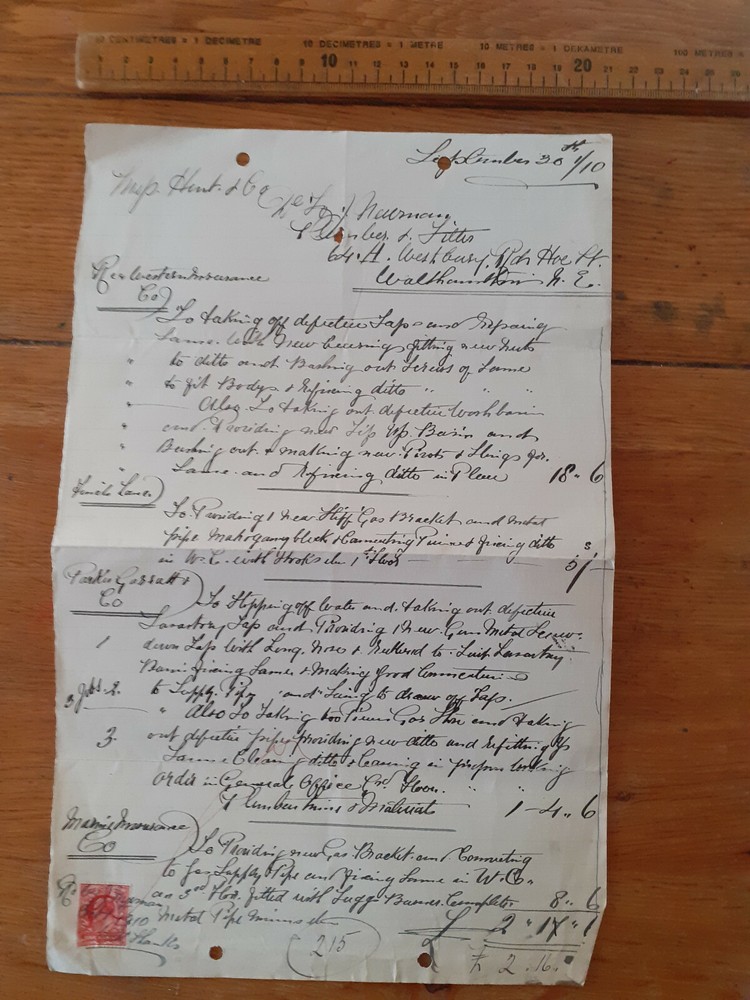 10 DECIMETRES = 1 METRE 10 METRES = 1 DEKAMETRE 100 METRES =
10 11 12 13 14 15 16 17 18 19 20 21 22 23 24
September 30th 1/10
Mess. Hunt & Co
Dr To J Newman
Plumber & Fitter
64. A. Westbury Rd Hoe St.
Walthamstow N. E.
Re Western Insurance
Co)
To taking off defective Taps and Repairing
Same. With New fitting new nuts
" to ditto and Bushing out Screws of Same
" to fit Bodys & Refixing ditto " "
" Also To taking out defective Washbasin
" and Providing new Tip Up Basin and
" Bushing out & making new Pivots & for
" Same and Refixing ditto in Place 18 " 6
Finch Lane)
To Providing 1 new Stiff Gas Bracket and metal
pipe Mahogany block & Connecting & fixing ditto
in W.C. with Hooks etc 1st Floor 5s/-
Parker Garratt &
Co) To Stopping off Water and taking out defective
Lavatory Tap and Providing 1 New Gun Metal Screw.
1 down Tap with Long nose & to Suit Lavatory
Basin fixing Same & Making good Connections
to Supply Pipe and to draw off Tap.
" Also To Taking two Gas and taking
3 out defective pipes providing new ditto and Refitting up
Same Cleaning ditto & leaving in proper working
order in General Office Grd Floor. " "
Plumbers time & Materials 1 - 4 " 6
Marine Insurance
Co) To Providing new Gas Bracket and Connecting
to Gas Supply Pipe and fixing Same in W.C.
on 3rd Floor fitted with Burner Complete 8 " 6
Metal Pipe
£ 2 " 17 " 1
Thanks
215
£ 2. 16.